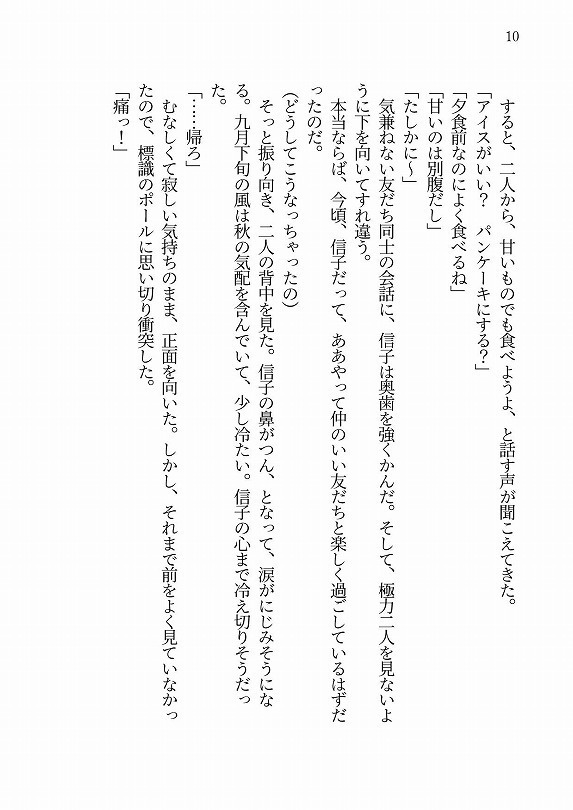 10
　すると、二人から、甘いものでも食べようよ、と話す声が聞こえてきた。
「アイスがいい？　パンケーキにする？」
「夕食前なのによく食べるね」
「甘いのは別腹だし」
「たしかに～」
　気兼ねない友だち同士の会話に、信子は奥歯を強くかんだ。そして、極力二人を見ないよ
うに下を向いてすれ違う。
　本当ならば、今頃、信子だって、ああやって仲のいい友だちと楽しく過ごしているはずだ
ったのだ。
（どうしてこうなっちゃったの）
　そっと振り向き、二人の背中を見た。信子の鼻がつん、となって、涙がにじみそうにな
る。九月下旬の風は秋の気配を含んでいて、少し冷たい。信子の心まで冷え切りそうだっ
た。
「……帰ろ」
　むなしくて寂しい気持ちのまま、正面を向いた。しかし、それまで前をよく見ていなかっ
たので、標識のポールに思い切り衝突した。
「痛っ！」